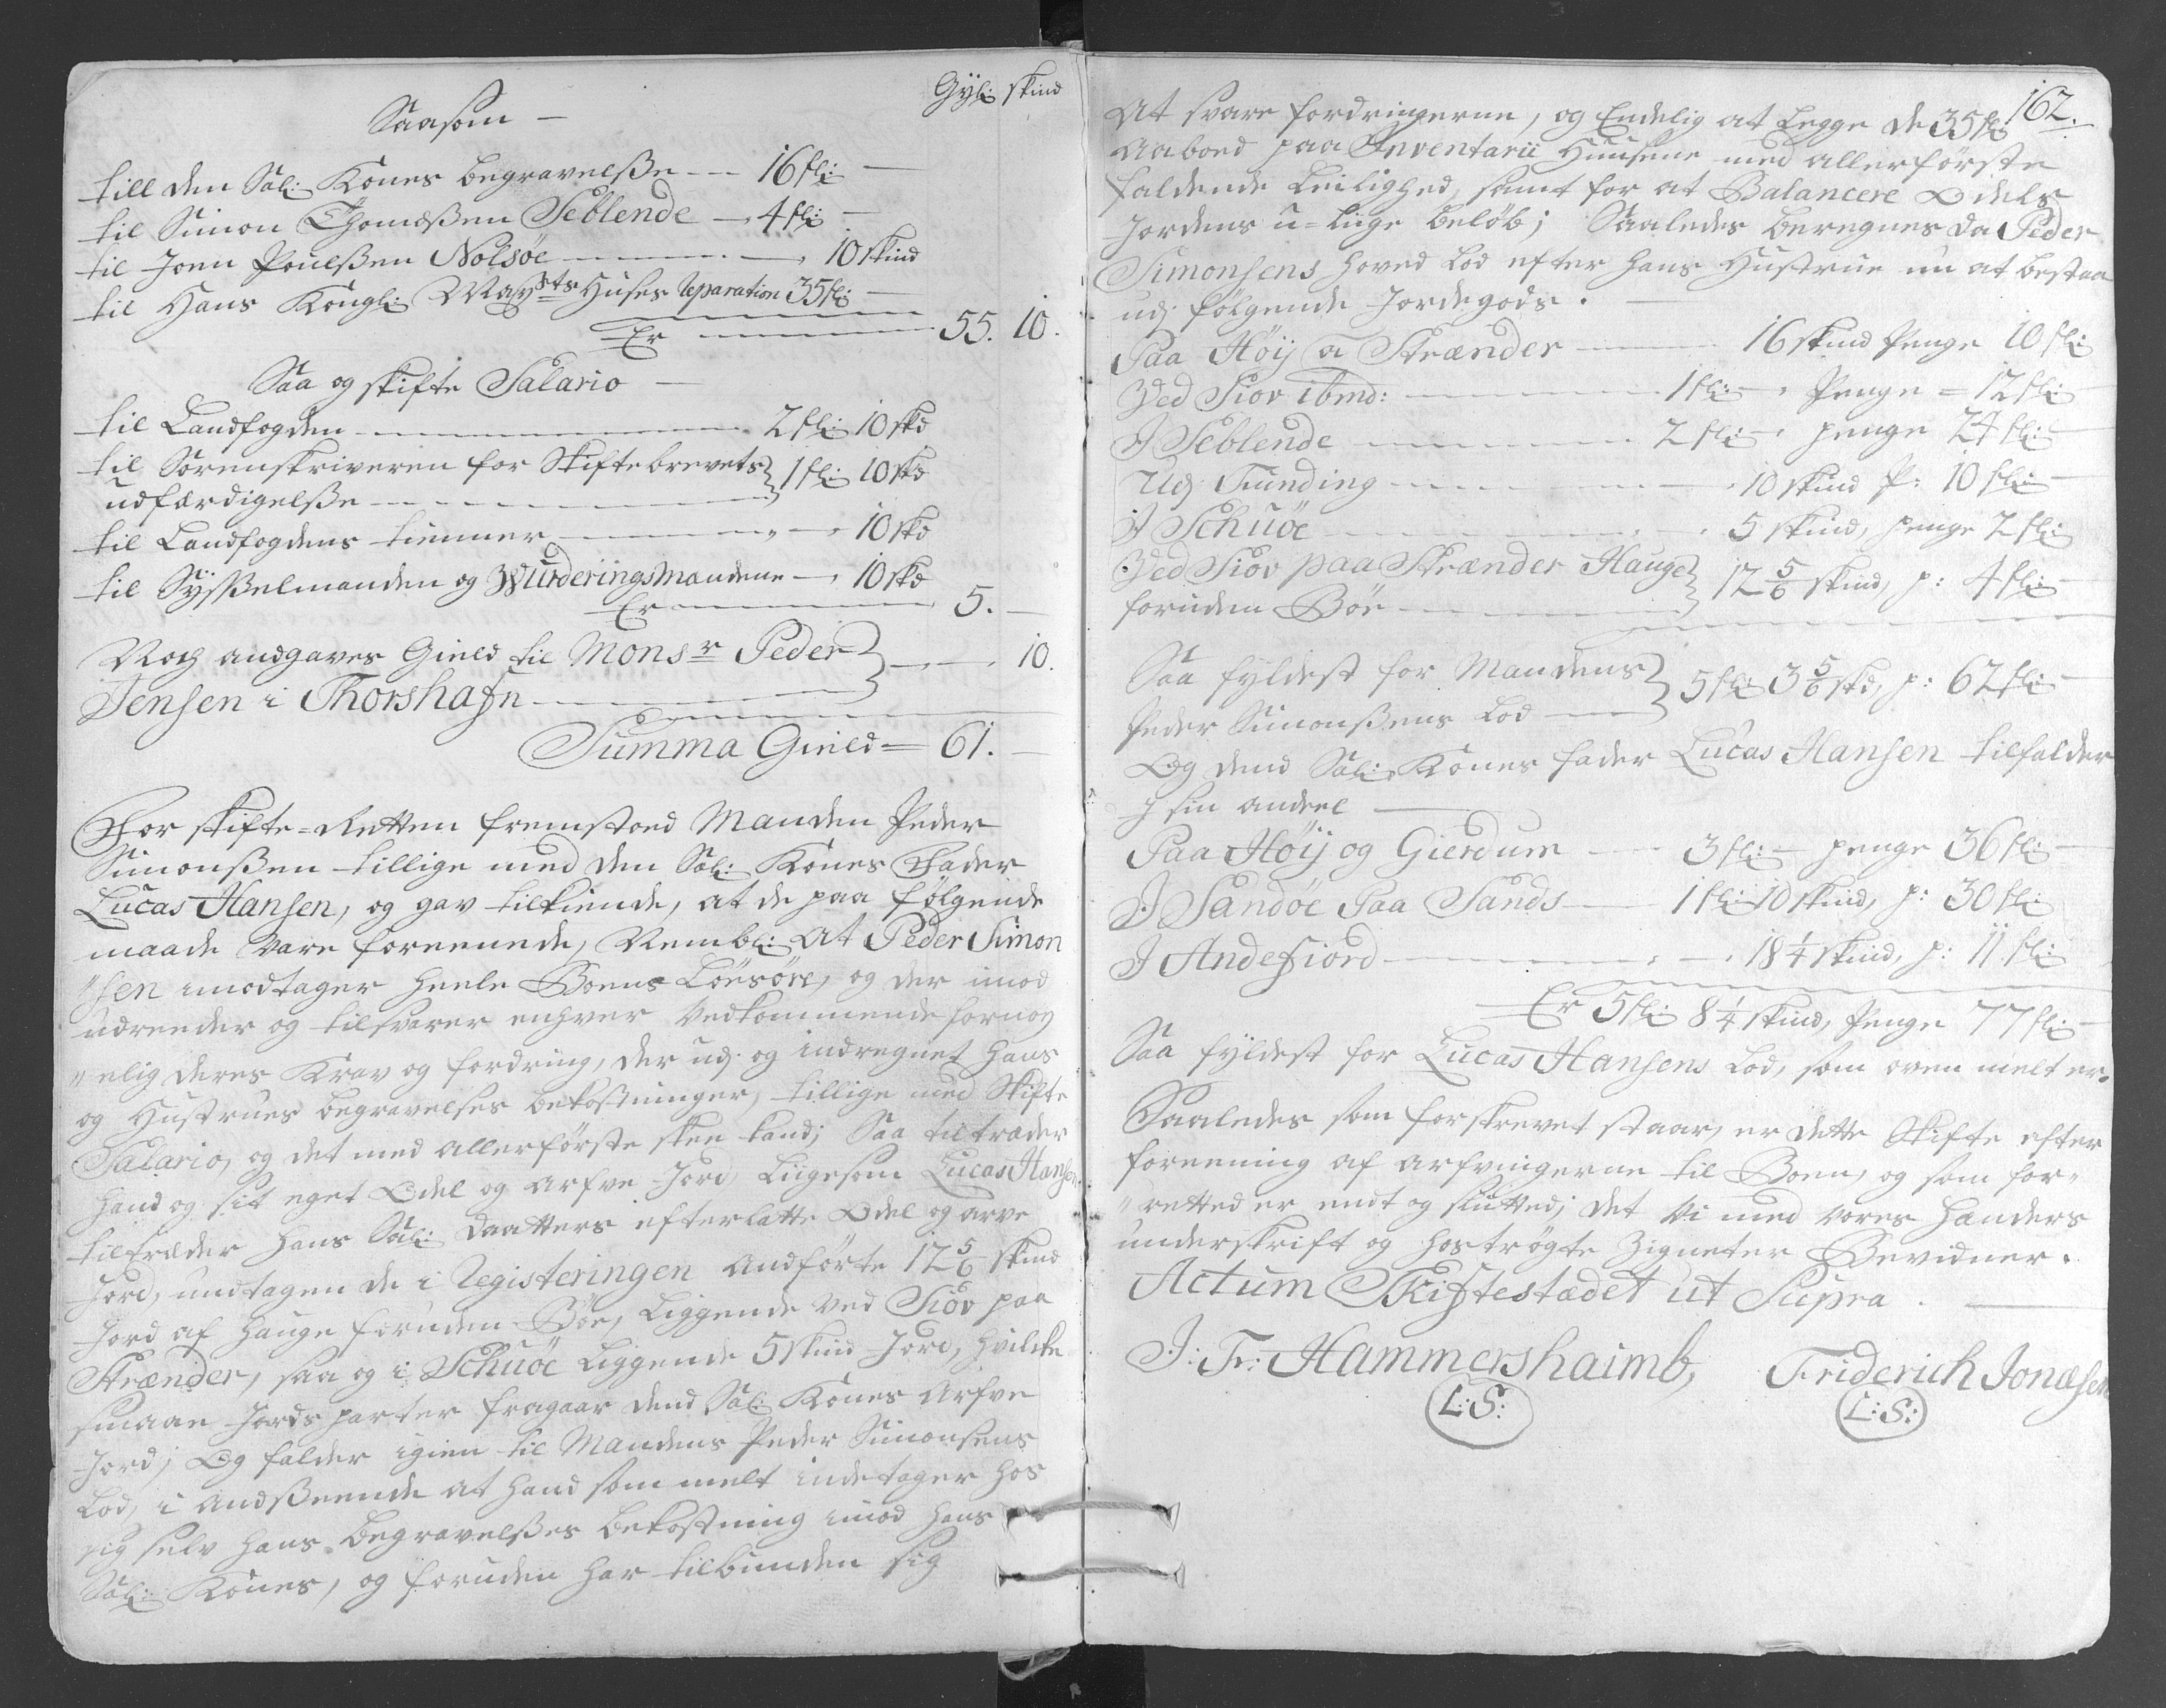 Gyl: skind
Saasom —
till den Sal: Kones begravelße — 16 fl: —
til Simon Thomæßen Seblende — 4 fl: —
til Joen Poulßen Nolsøe — 10 skind
til Hans Kongl: May:sts Huses reparation 35 fl: —
Er — 55. 10.
Saa og skifte Salario —
til Landfogden — 2 fl: 10 skd
til Sorenskriveren for Skiftebrevets } 1 fl: 10 skd
udfærdigelße —
til Landfogdens tienner — 10 skd
til Sysselmanden og Wurderingsmændene — 10 skd
Er — 5. —
Noch andgaves Gield til Monsr Peder } — 10.
Jensen i Thorshafn —
Summa Gield = 61. —
For skifte-Retten fremstoed Manden Peder
Simonßen tillige med den Sal: Kones Fader
Lucas Hansen, og gav tilkiende, at de paa følgende
maade vare foreenede, Nembl: At Peder Simon
"sen imodtager heele Boens Løesøre, og der imod
udreeder og tilsvarer enhver vedkommende fornøy
"elig deres Krav og fordring, der udj og indregnet hans
og Hustrues begravelses bekostninger, tillige med Skifte
Salario, og det med allerførste skee kand; Saa tiltræder
hand og sit eget Odel og arfve Jord, liigesom Lucas Hansen
tiltræder hans Sal: Daatters efterlatte Odel og arve
Jord, undtagen de i Registeringen andførte 12 5/6 skind
Jord af Hauge foruden Bøe, liggende ved Siov paa
Strænder, saa og i Schuøe liggende 5 skind Jord, hvilcke
smaae Jords parter fragaar dend Sal: Kones Arfve
Jord; Og falder igien til Mandens Peder Simonsens
Lod, i andßeende at hand som melt indtager hos
sig selv hans begravelßes bekostning imod hans
Sal: Kones, og foruden har tilbunden sig
162.
At svare fordringerne, og Endelig at legge de 35 fl:
Aaboed paa Inventarii Huusene med allerførste
faldende leilighed, samt for at Balancere Odels
Jordens u-liige beløb; Saaledes beregnes da Peder
Simonsens hoved Lod efter hans Hustrue nu at bestaa
udj følgende Jordegods. —
Paa Høij a Strænder — 16 skind Penge 10 fl:
Ved Siov ibmd: — 1 fl: — Penge = 12 fl:
I Seblende — 2 fl: — penge 24 fl: —
Udj Funding — 10 skind P: 10 fl: —
I Schuøe — 5 skind, penge 2 fl:
Ved Siov paa Strænder Hauge } 12 5/6 skind, p: 4 fl: —
foruden Bøe —
Saa fyldest for Mandens } 5 fl: 3 5/6 skd, p: 62 fl: —
Peder Simonßens Lod —
Og dend Sal: Kones fader Lucas Hansen tilfalder
J sin andeel —
Paa Høij og Gierdum — 3 fl: — penge 36 fl: —
I Sandøe Paa Sands — 1 fl: 10 skind, p: 30 fl:
I Andefiord — 18 1/4 skind, p: 11 fl:
Er 5 fl: 8 1/4 skind, Penge 77 fl: —
Saa fyldest for Lucas Hansens Lod, som oven melt er.
Saaledes som forskrevet staar, er dette Skifte efter
foreening af arfvingerne til Boen, og som for-
"retted er endt og sluttet; det Vi med vores hænders
underskrift og hostrøgte Zigneter Bevidner.
Actum Skiftestædet ut Supra. —
J: Fr: Hammershaimb, Friderich Jonæsen
L:S: L:S: